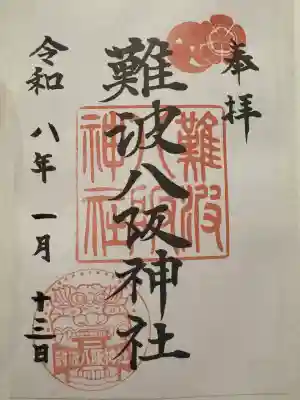 奉拝
難波八阪神社
令和八年一月十三日
難波
八阪
神社
難波八阪神社